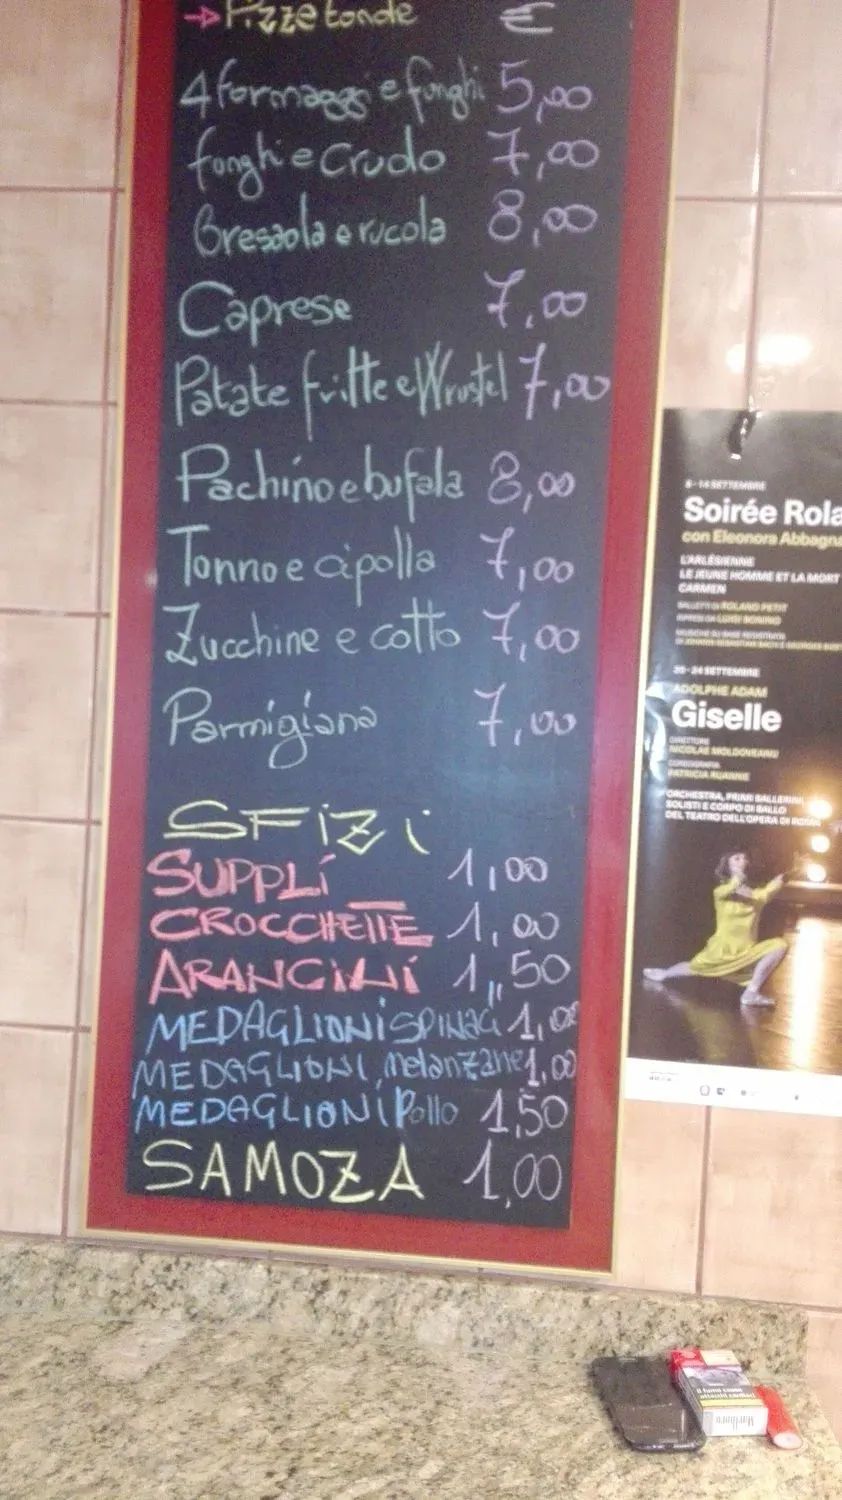 → Pizze tonde €
4 formaggi e funghi 5,00
funghi e Crudo 7,00
Bresaola e rucola 8,00
Caprese 7,00
Patate fritte e Wrustel 7,00
Pachino e bufala 8,00
Tonno e cipolla 7,00
Zucchine e cotto 7,00
Parmigiana 7,00
SFIZI
SUPPLÍ 1,00
CROCCHETTE 1,00
ARANCINI 1,50
MEDAGLIONI SPINACI 1,00
MEDAGLIONI Melanzane 1,00
MEDAGLIONI Pollo 1,50
SAMOZA 1,00
8 - 14 SETTEMBRE
Soirée Rola
con Eleonora Abbagna
L'ARLÉSIENNE
LE JEUNE HOMME ET LA MORT
CARMEN
BALLETTI DI ROLAND PETIT
RIPRESI DA LUIGI BONINO
20 - 24 SETTEMBRE
ADOLPHE ADAM
Giselle
DIRETTORE
NICOLAE MOLDOVEANU
COREOGRAFIA
PATRICIA RUANNE
ORCHESTRA, PRIMI BALLERINI,
SOLISTI E CORPO DI BALLO
DEL TEATRO DELL'OPERA DI ROMA
Il fumo
Marlboro